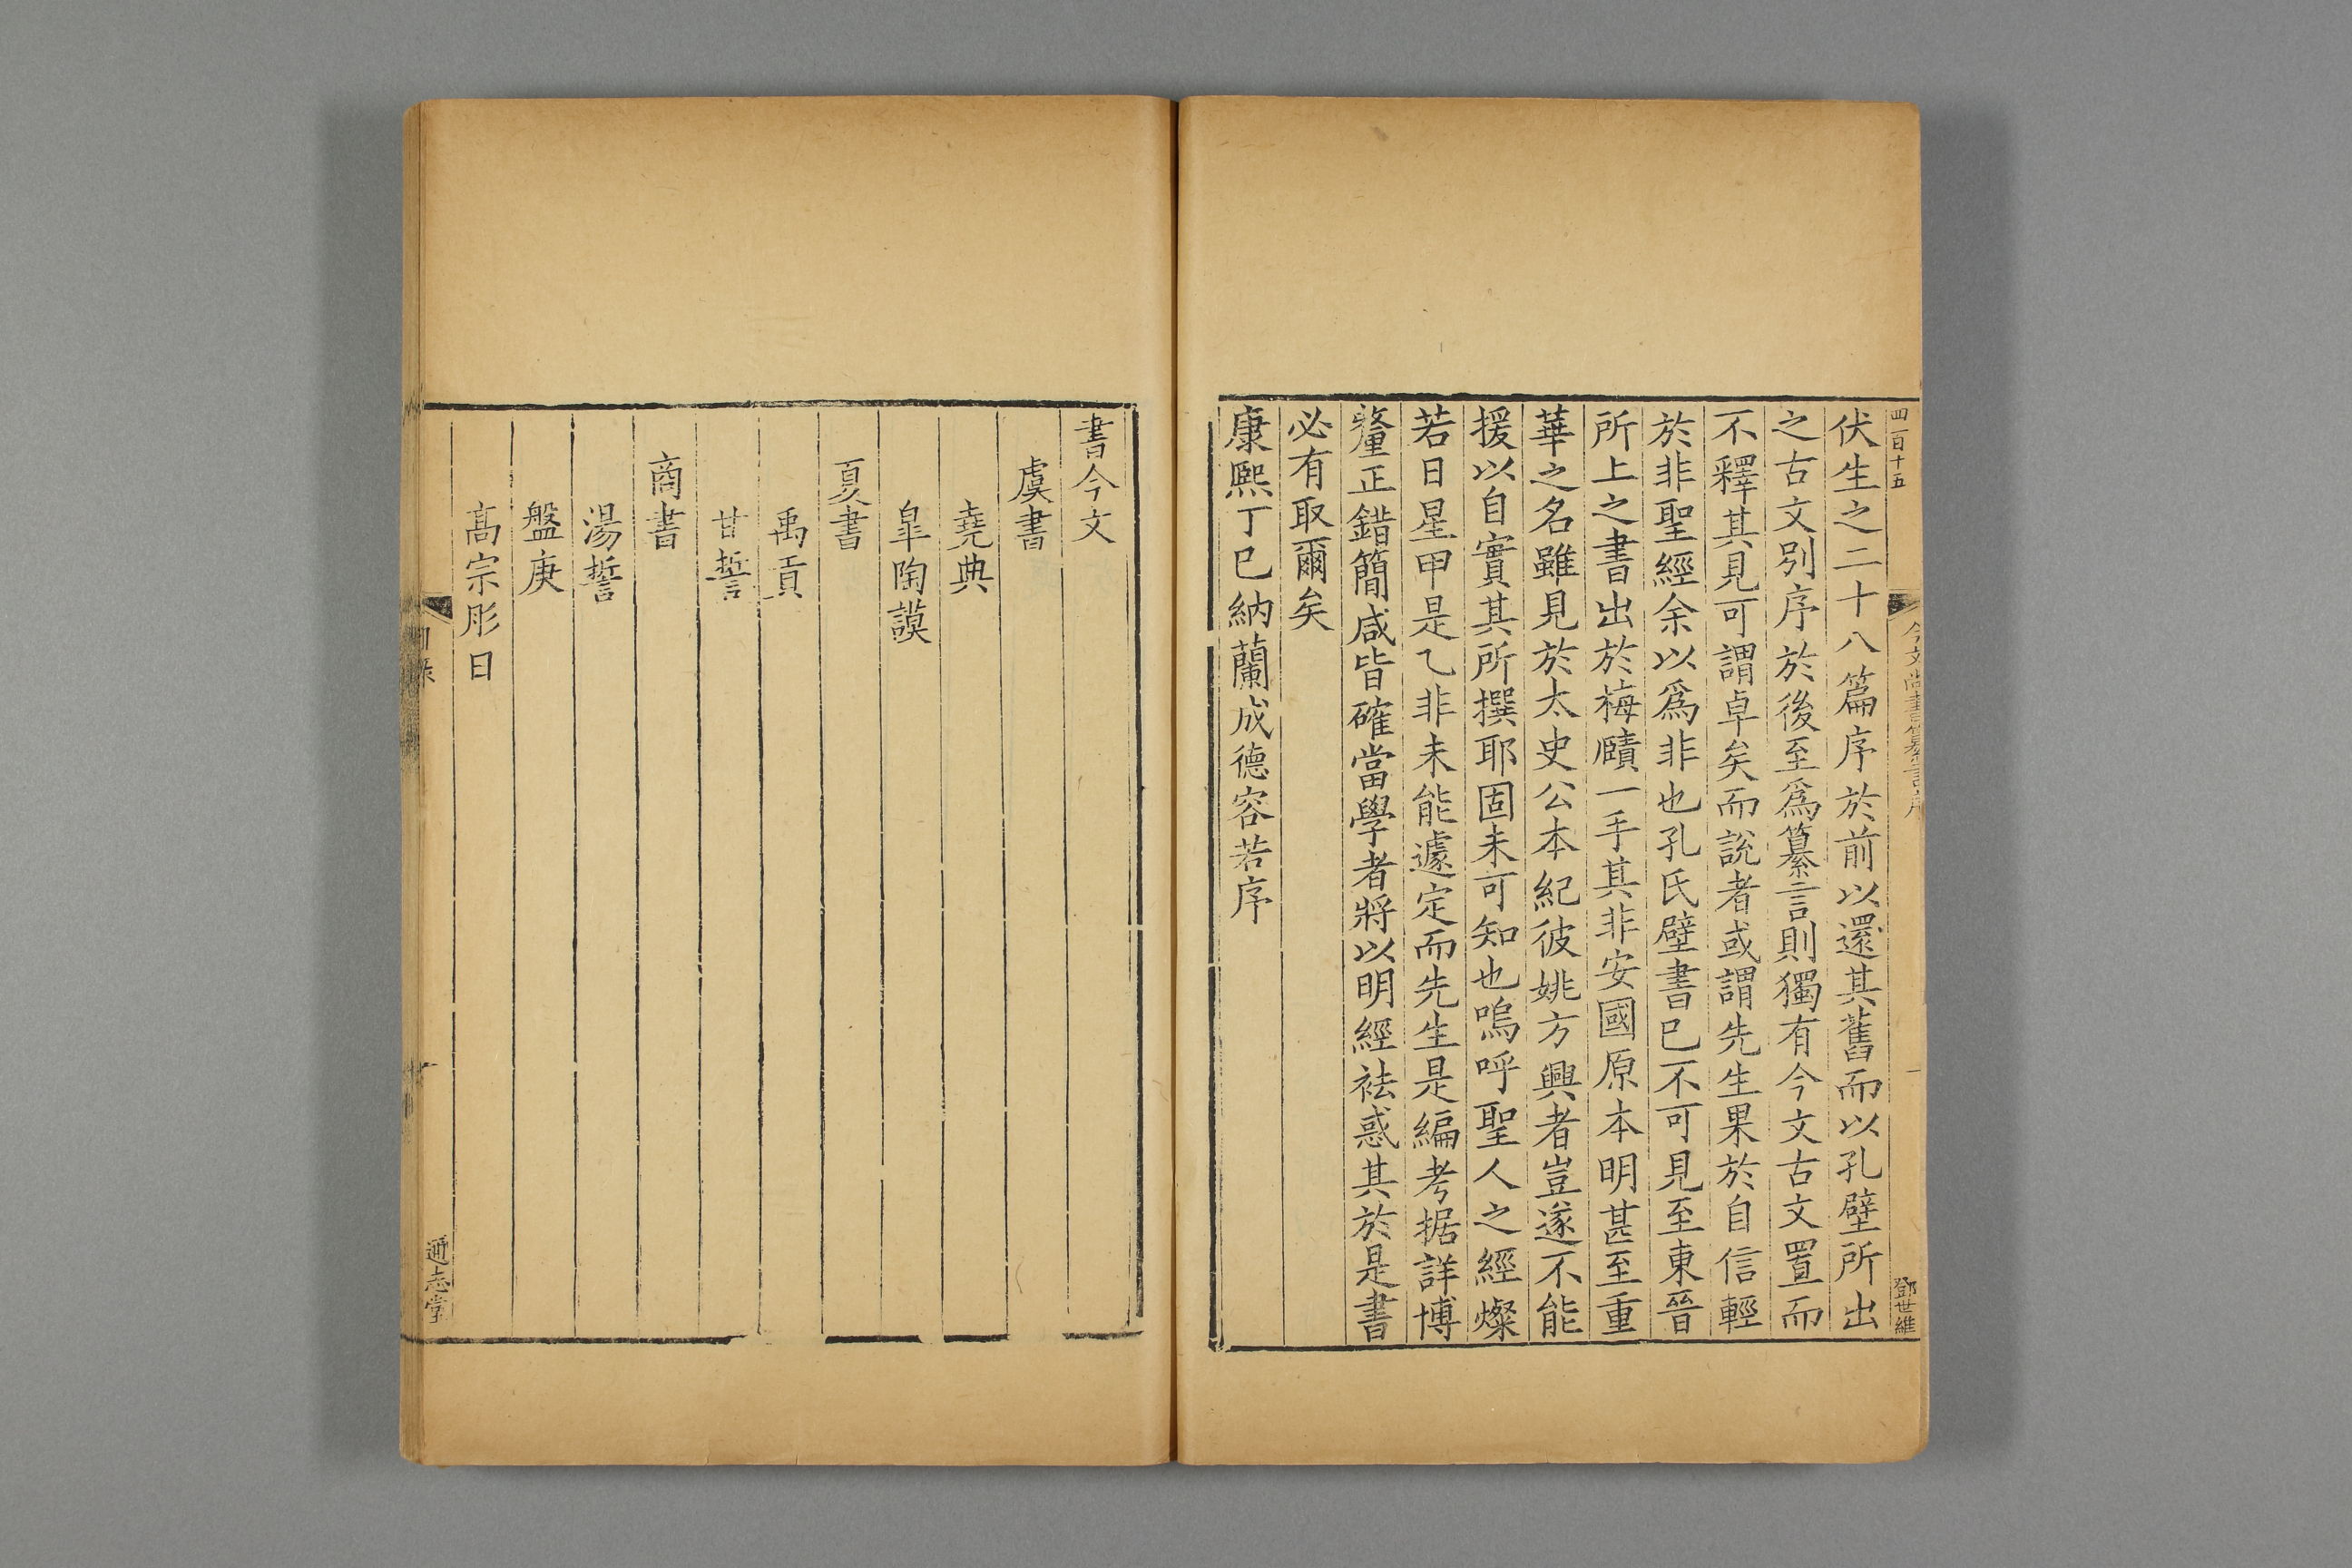 四百十五
今文尚書纂言序
一
鄧世維
伏生之二十八篇序於前以還其舊而以孔壁所出
之古文別序於後至爲纂言則獨有今文古文置而
不釋其見可謂卓矣而說者或謂先生果於自信輕
於非聖經余以爲非也孔氏壁書已不可見至東晉
所上之書出於梅賾一手其非安國原本明甚至重
華之名雖見於太史公本紀彼姚方興者豈遂不能
援以自實其所撰耶固未可知也嗚呼聖人之經燦
若日星甲是乙非未能遽定而先生是編考据詳博
釐正錯簡咸皆確當學者將以明經袪惑其於是書
必有取爾矣
康熙丁巳納蘭成德容若序
書今文
虞書
堯典
皐陶謨
夏書
禹貢
甘誓
商書
湯誓
盤庚
髙宗肜日
目錄
通志堂